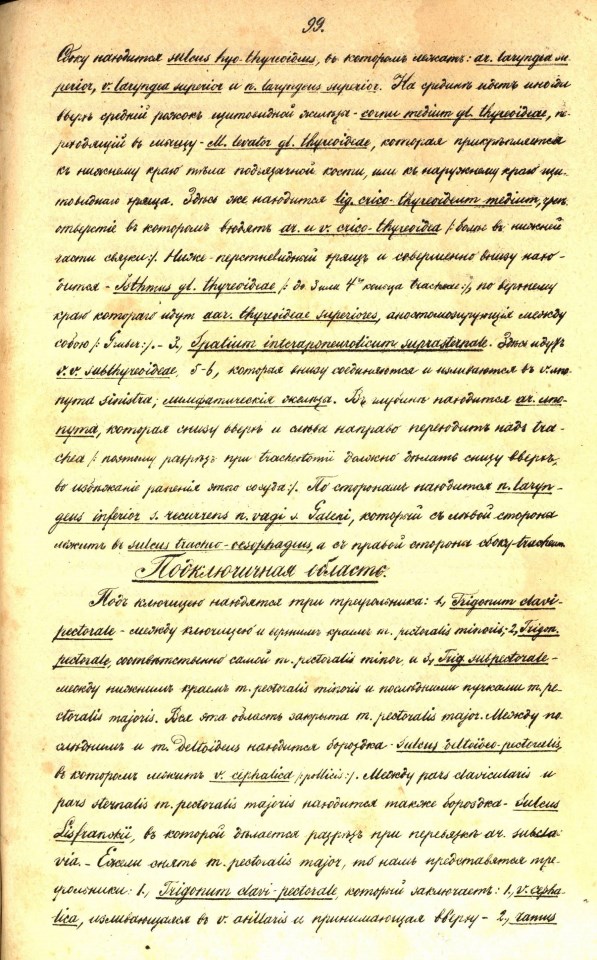 99.
Сбоку находится sulcus hyo-thyreoideus, въ которомъ лежатъ: ar. laryngea su-
perior, v. laryngea superior и n. laryngeus superior. На срединѣ идетъ иногда
вверхъ средній рожокъ щитовидной железы - cornu medium gl. thyreoideae, пе-
реходящій въ мышцу - M. levator gl. thyreoideae, которая прикрѣпляется
къ нижнему краю тѣла подъязычной кости, или къ наружному краю щи-
товиднаго хряща. Здѣсь же находится lig. crico-thyreoideum medium, чрезъ
отверстіе въ которомъ входятъ ar. и v. crico-thyreoidea /: болѣе въ нижней
части связки :/. Ниже - перстневидный хрящъ и совершенно внизу нахо-
дится - Isthmus gl. thyreoideae /: до 3 или 4го кольца tracheae :/, по верхнему
краю котораго идутъ aar. thyreoideae superiores, анастомозирующія между
собою /: Gruber :/. - 3, Spatium interaponeuroticum suprasternale. Здѣсь идутъ
v.v. subthyreoideae, 5-6, которая внизу соединяются и изливаются въ v. ano-
nyma sinistra; лимфатическія железы. Въ глубинѣ находится ar. ano-
nyma, которая снизу вверхъ и слѣва направо переходитъ надъ tra-
chea /: поэтому разрѣзъ при tracheotomii должно дѣлать снизу вверхъ,
во избѣжаніе раненія этого сосуда :/. По сторонамъ находится n. laryn-
geus inferior s. recurrens n. vagi s. Galeni, который съ лѣвой стороны
лежитъ въ sulcus tracheo-oesophageus, а съ правой стороны сбоку tracheae.
Подключичная область.
Подъ ключицею находятся три треугольника: 1, Trigonum clavi-
pectorale - между ключицею и верхнимъ краемъ m. pectoralis minoris; 2, Trigon.
pectorale, соотвѣтственно самой m. pectoralis minor, и 3, Trig. subpectorale -
между нижнимъ краемъ m. pectoralis minoris и послѣдними пучками m. pe-
ctoralis majoris. Вся эта область закрыта m. pectoralis major. Между по-
слѣднимъ и m. Deltoideus находится бороздка - Sulcus deltoideo-pectoralis,
въ которомъ лежитъ v. cephalica /: pollicis :/. Между pars clavicularis и
pars sternalis m. pectoralis majoris находится также бороздка - Sulcus
Lisfrankii, въ которой дѣлается разрѣзъ при перевязкѣ ar. subcla-
via. - Ежели снять m. pectoralis major, то намъ представятся тре-
угольники: 1, Trigonum clavi-pectorale, который заключаетъ: 1, v. cepha-
lica, изливающаяся въ v. axillaris и принимающая вверху - 2, ramus